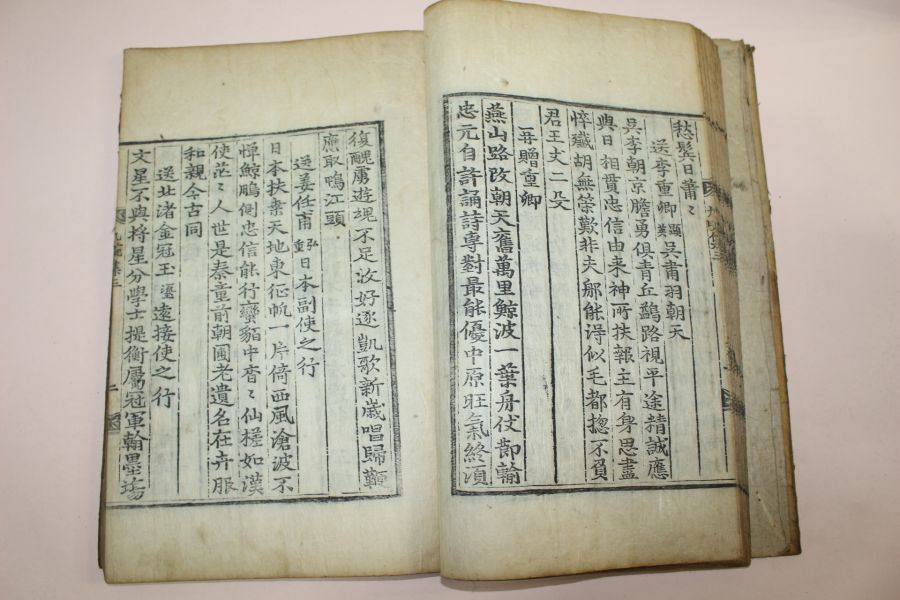 愁鬂日蕭〻
送李重卿顯英吳肅羽朝天
吳李朝京膽勇俱青丘鷁路視平途精誠應
與日相貫忠信由来神所扶報主有身思盡
悴殲胡無策歎非夫那能得似毛都摠不負
君王丈二殳
再贈重卿
燕山路改朝天舊萬里鯨波一葉舟仗節輸
忠元自許誦詩專對最能優中原旺氣終須
復醜虜遊魂不足汝好逐凱歌新歲唱歸鞭
應取鴨江頭
送姜任甫弘重日本副使之行
日本扶桒天地東征帆一片倚西風滄波不
憚鯨鵬側忠信能行蠻貊中杳〻仙槎如漢
使茫〻人世是秦童前朝圃老遺名在卉服
和親今古同
送北渚金冠玉瑬遠接使之行
文星不與将星分學士提衡属冠軍翰墨塲